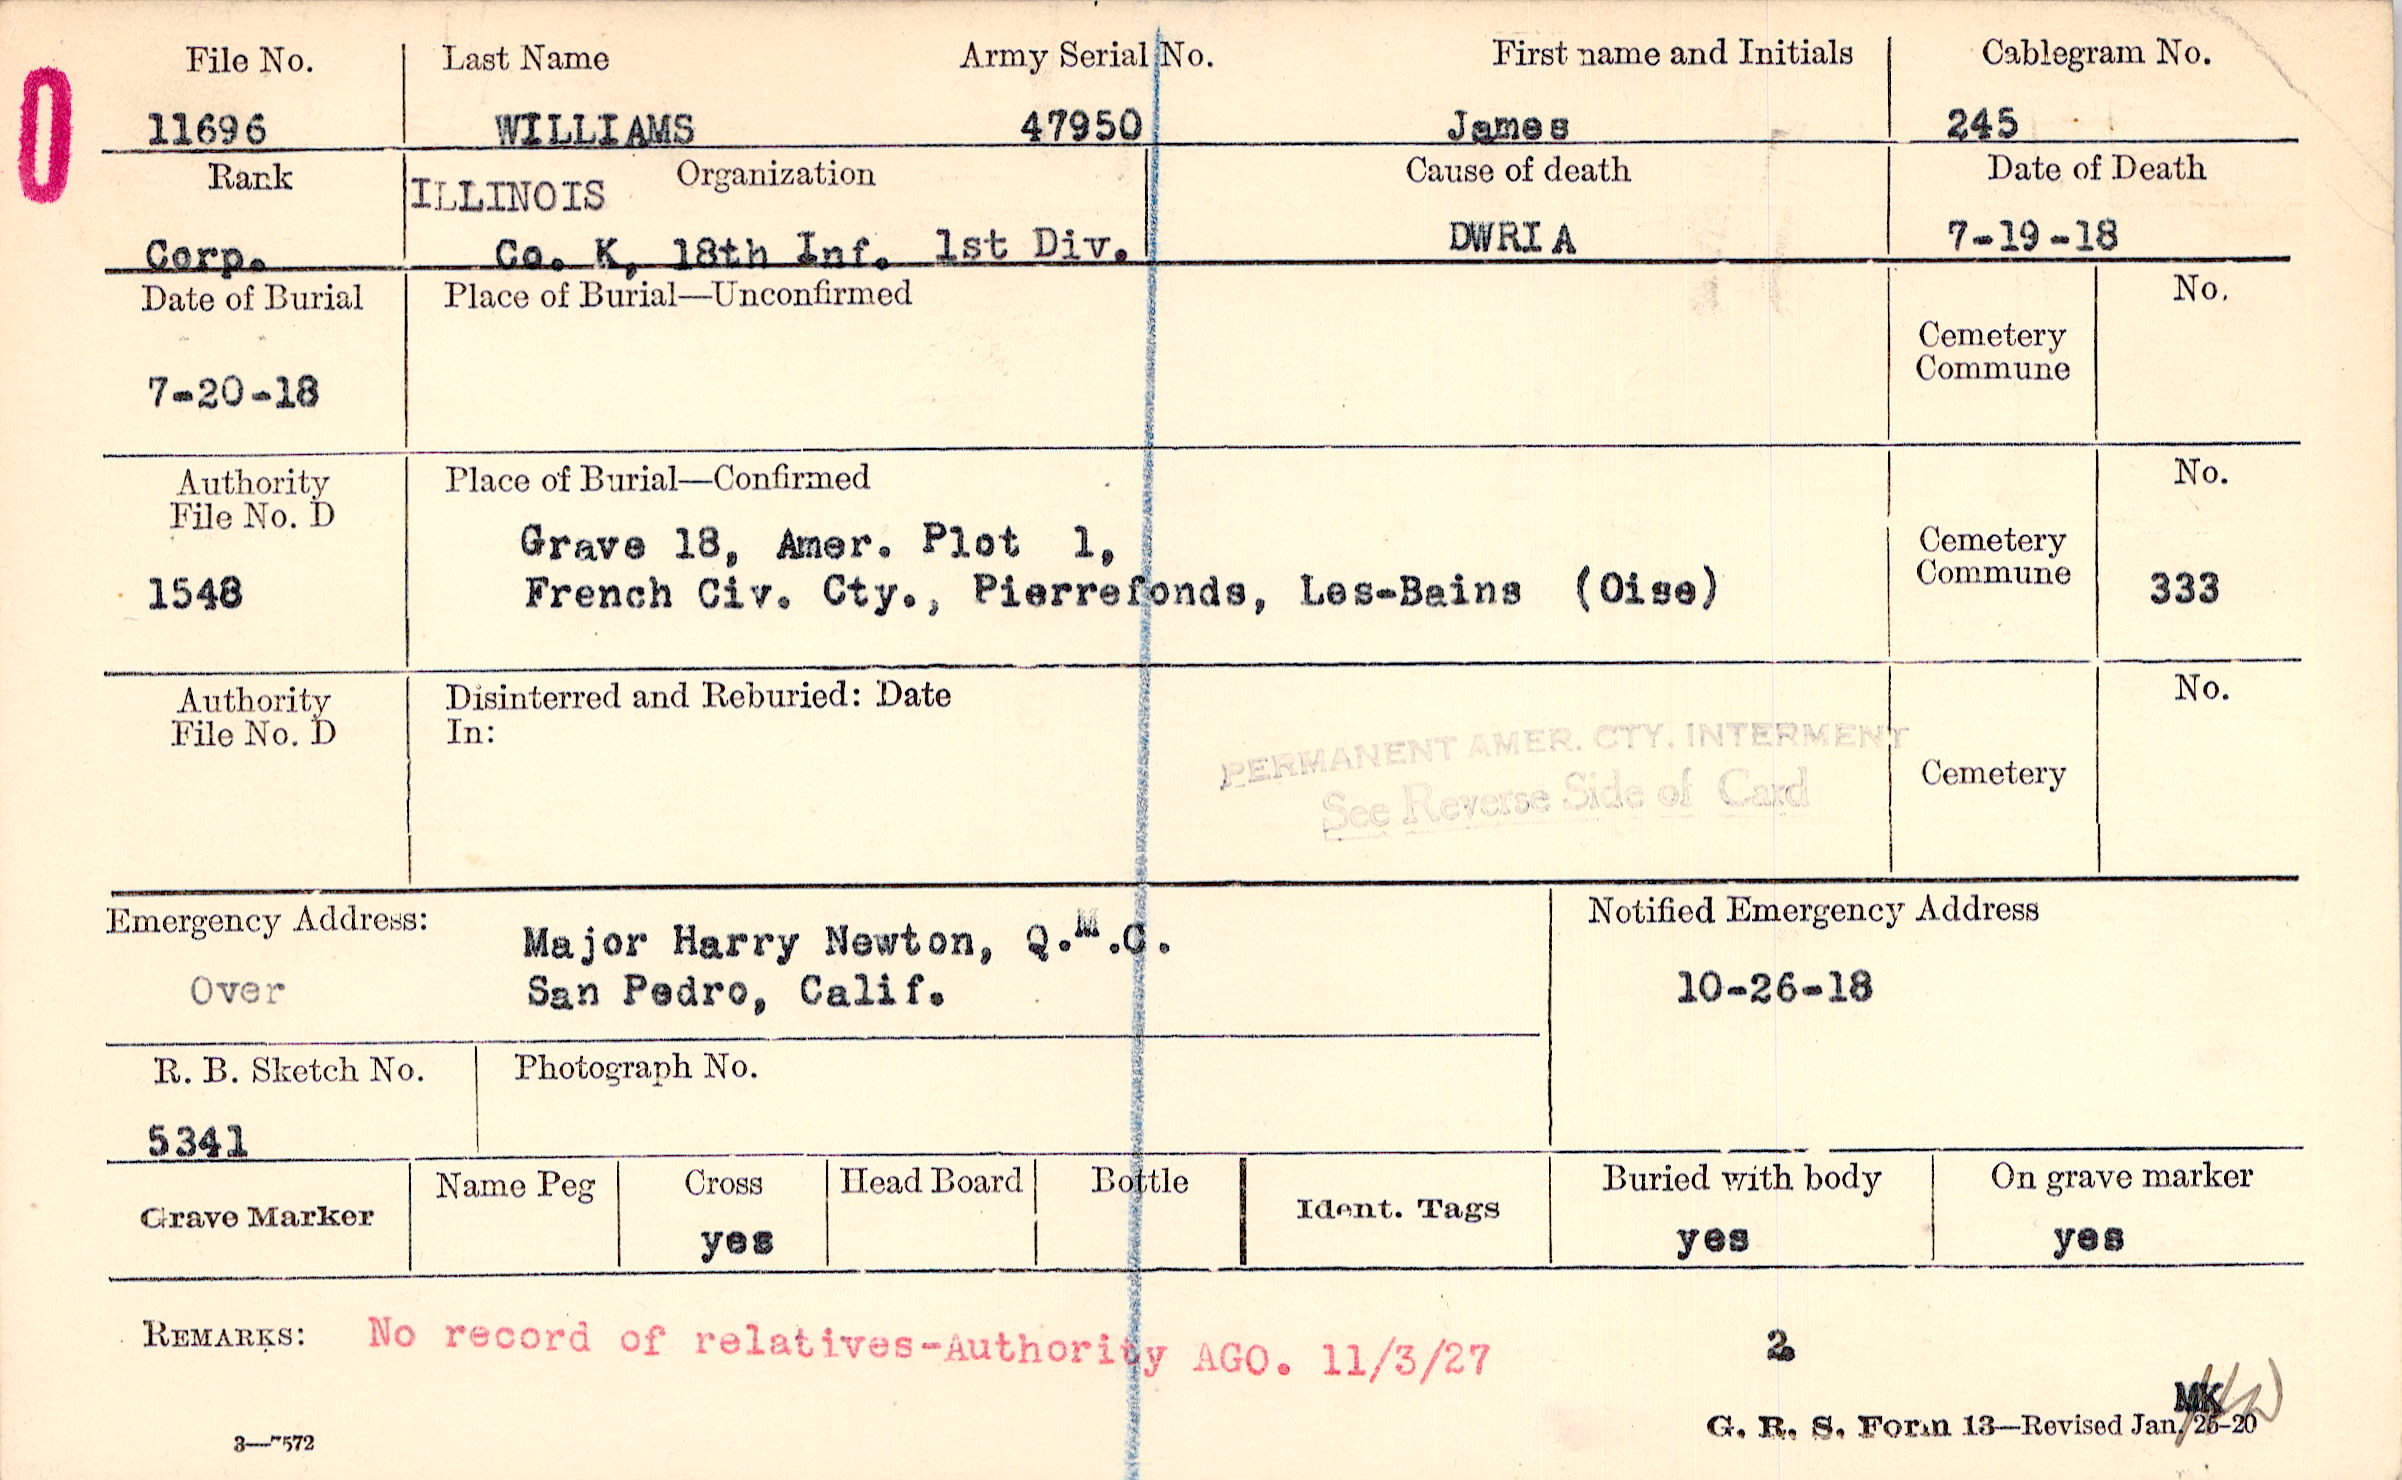 0
File No. Last Name Army Serial No. First name and Initials Cablegram No.
11696 WILLIAMS 47950 James 245
Rank ILLINOIS Organization Cause of death Date of Death
Corp. Co. K, 18th Inf. 1st Div. DWRIA 7-19-18
Date of Burial Place of Burial—Unconfirmed No.
Cemetery
Commune
7-20-18
Authority Place of Burial—Confirmed No.
File No. D
Grave 18, Amer. Plot 1, Cemetery
1548 French Civ. Cty., Pierrefonds, Les-Bains (Oise) Commune 333
Authority Disinterred and Reburied: Date No.
File No. D In:
PERMANENT AMER. CTY. INTERMENT
See Reverse Side of Card
Cemetery
Emergency Address: Notified Emergency Address
Major Harry Newton, Q.M.C.
Over San Pedro, Calif. 10-26-18
R. B. Sketch No. Photograph No.
5341
Grave Marker Name Peg Cross Head Board Bottle Ident. Tags Buried with body On grave marker
yes yes yes
REMARKS: No record of relatives-Authority AGO. 11/3/27 2
MK
3—7572 G. R. S. Form 13—Revised Jan. 26-20